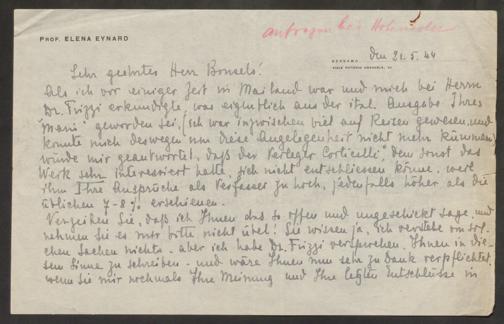 PROF. ELENA EYNARD
anfragen bei
BERGAMO,
VIALE VITTORIO EMANUELE,
den 21. 5. 44
Sehr geehrter Herr Bonsels!
Als ich vor einiger Zeit in Mailand war und mich bei Herrn
Dr. Frizzi erkundigte, was eigentlich aus der ital. Ausgabe Ihres
"Mario" geworden sei, (ich war inzwischen viel auf Reisen gewesen und
konnte mich deswegen um diese Angelegenheit nicht mehr kümmern)
wurde mir geantwortet, daß der Verleger Corticelli, den sonst das
Werk sehr interessiert hatte, sich nicht entschliessen könne, weil
ihm Ihre Ansprüche als Verfasser zu hoch, jedenfalls höher als die
üblichen 7-8% erschienen.
Verzeihen Sie, daß ich Ihnen das so offen und ungeschickt sage, und
nehmen Sie es mir bitte nicht übel! Sie wissen ja, ich verstehe von sol-
chen Sachen nichts - aber ich habe Dr. Frizzi versprochen, Ihnen in die-
sem Sinne zu schreiben - und wäre Ihnen nun sehr zu Dank verpflichtet,
wenn Sie mir nochmals Ihre Meinung und Ihre letzten Entschlüsse in